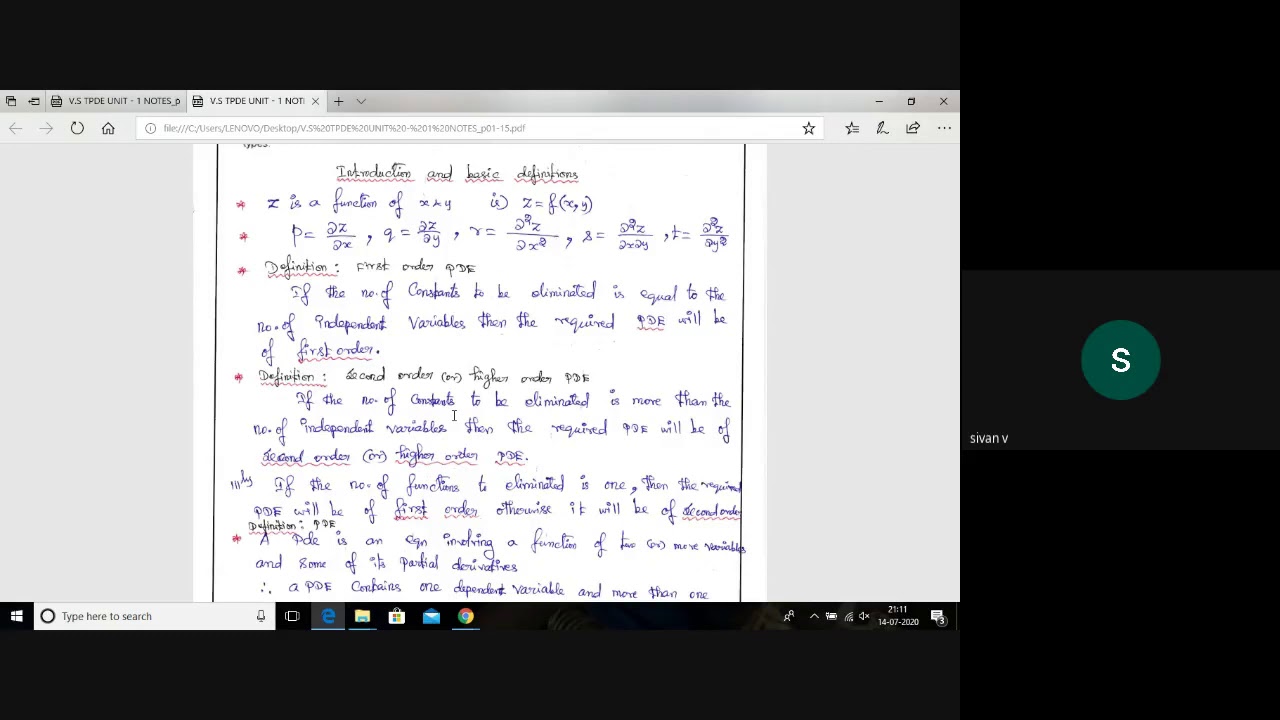 V.S TPDE UNIT - 1 NOTES_p
V.S TPDE UNIT - 1 NOTI
file:///C:/Users/LENOVO/Desktop/V.S%20TPDE%20UNIT%20-%201%20NOTES_p01-15.pdf
types.
Introduction and basic definitions
* z is a function of x & y ie) z = f(x,y)
* p = ∂z/∂x , q = ∂z/∂y , r = ∂²z/∂x² , s = ∂²z/∂x∂y , t = ∂²z/∂y²
* Definition : First order PDE
If the no. of Constants to be eliminated is equal to the
no. of independent variables then the required PDE will be
of first order.
* Definition : Second order (or) higher order PDE
If the no. of constants to be eliminated is more than the
no. of independent variables then the required PDE will be of
second order (or) higher order PDE.
|||ly If the no. of functions to eliminated is one, then the required
PDE will be of first order otherwise it will be of second order
Definition : PDE
* A Pde is an eqn involving a function of two (or) more variables
and some of its partial derivatives
∴ a PDE Contains one dependent variable and more than one
S
sivan v
Type here to search
21:11
14-07-2020
3